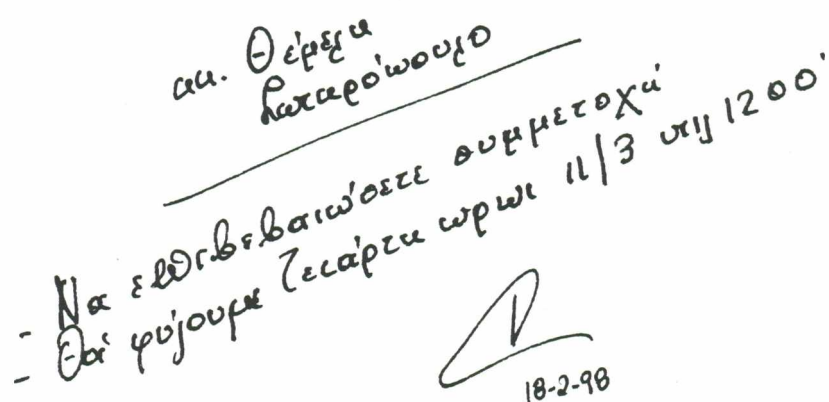 κκ. Θέμελη
Σωταρόπουλο
- Να επιβεβαιώσετε συμμετοχή
- Θα φύγουμε Τετάρτη πρωί 11/3 στις 1200'
18-2-98